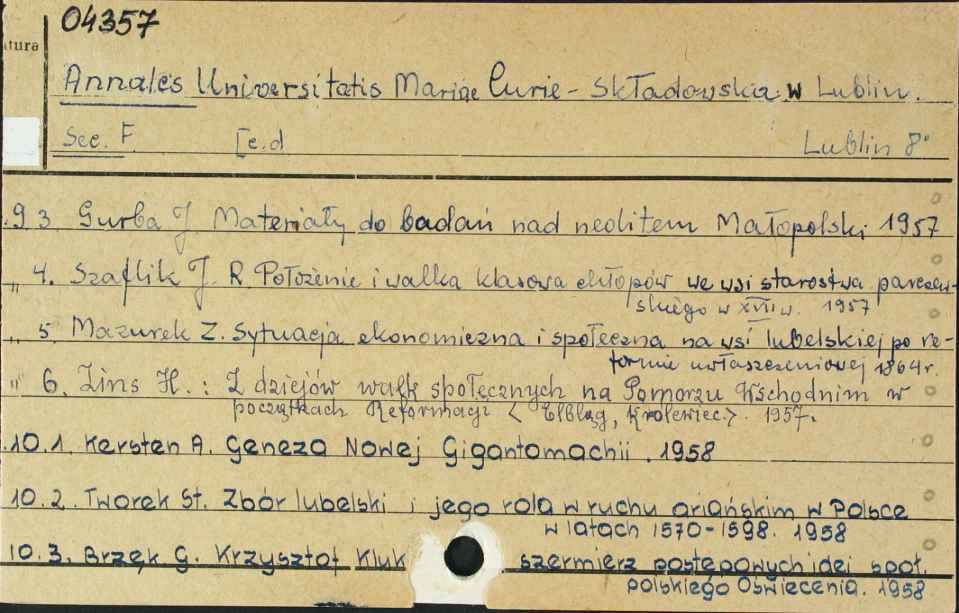 04357
tura
Annales Universitatis Mariae Curie - Składowska w Lublin.
Sec. F. [e.d Lublin 8°
.9 3. Gurba J Materiały do badań nad neolitem Małopolski 1957
„ 4. Szaflik J. R Położenie i walka klasowa chłopów we wsi starostwa parczew-
skiego w XVII w. 1957
„ 5. Mazurek Z. Sytuacja ekonomiczna i społeczna na wsi lubelskiej po re-
formie uwłaszczeniowej 1864r.
„ 6. Zins H. : Z dziejów walk społecznych na Pomorzu Wschodnim w
początkach Reformacji < Elbląg, Królewiec.> . 1957.
.10.1. Kersten A. Geneza Nowej Gigantomachii . 1958
10.2. Tworek St. Zbór lubelski i jego rola w ruchu ariańskim w Polsce
w latach 1570-1598. 1958
10.3. Brzęk G. Krzysztof Kluk szermierz postępowych idei społ.
polskiego Oświecenia. 1958